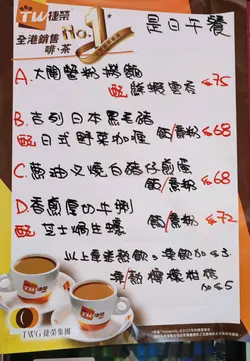 TW捷榮
全港銷售
啡·茶
No.1
是日午餐
A. 大閘蟹粉撈麵
配鮮蝦雲吞 $75
B. 吉列日本黑毛豬
配日式野菜咖喱 飯/意粉 $68
C. 蔥油叉燒白豬仔煎蛋
飯/意粉 $68
D. 香煎厚切牛脷
配芝士焗生蠔 飯/意粉 $72
以上各送熱飲，凍飲加$3.
凍/熱檸檬柑桔
加$5
TWG 捷榮集團